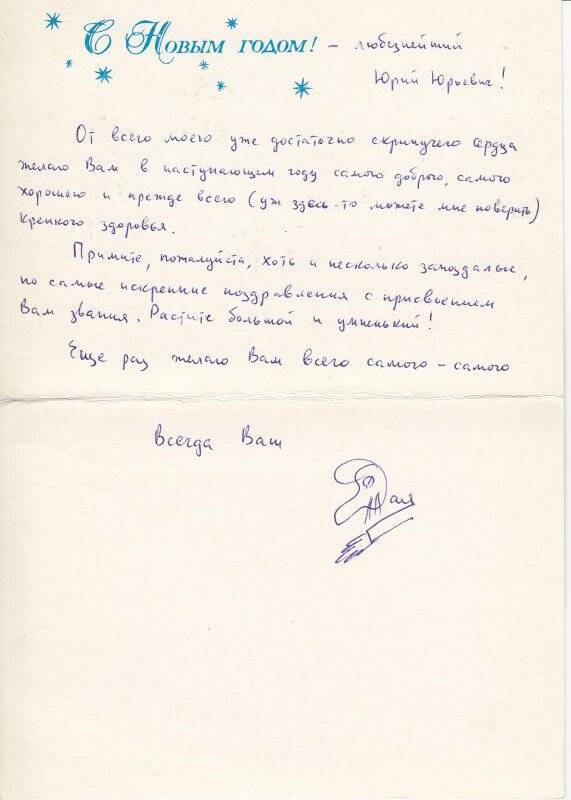 С Новым годом! – любезнейший
Юрий Юрьевич!
От всего моего уже достаточно скрипучего сердца
желаю Вам в наступающем году самого доброго, самого
хорошего и прежде всего (уж здесь-то можете мне поверить)
крепкого здоровья.
Примите, пожалуйста, хоть и несколько запоздалые,
но самые искренние поздравления с присвоением
Вам звания. Растите большой и умненький!
Еще раз желаю Вам всего самого – самого
Всегда Ваш